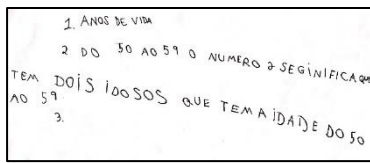 1. ANOS DE VIDA
2 DO 50 AO 59 O NUMERO 2 SEGINIFICA QUE
TEM DOIS IDOSOS QUE TEM A IDADE DO 50
AO 59
3.